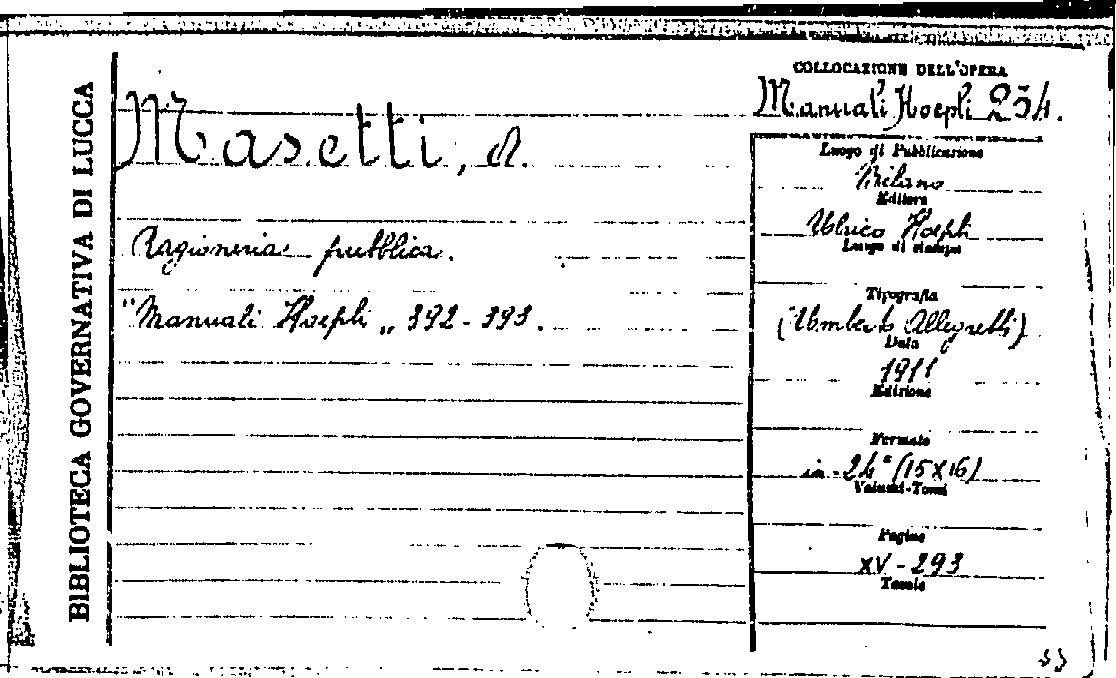 BIBLIOTECA GOVERNATIVA DI LUCCA
Masetti, A.
Ragioneria pubblica.
"Manuali Hoepli„ 392-393.
COLLOCAZIONE DELL'OPERA
Manuali Hoepli 254.
Luogo di Pubblicazione
Milano
Editore
Ulrico Hoepli
Luogo di stampa
Tipografia
(Umberto Allegretti)
Data
1911
Edizione
Formato
in-24° (15x16)
Volumi-Tomi
Pagine
XV-293
Tavole